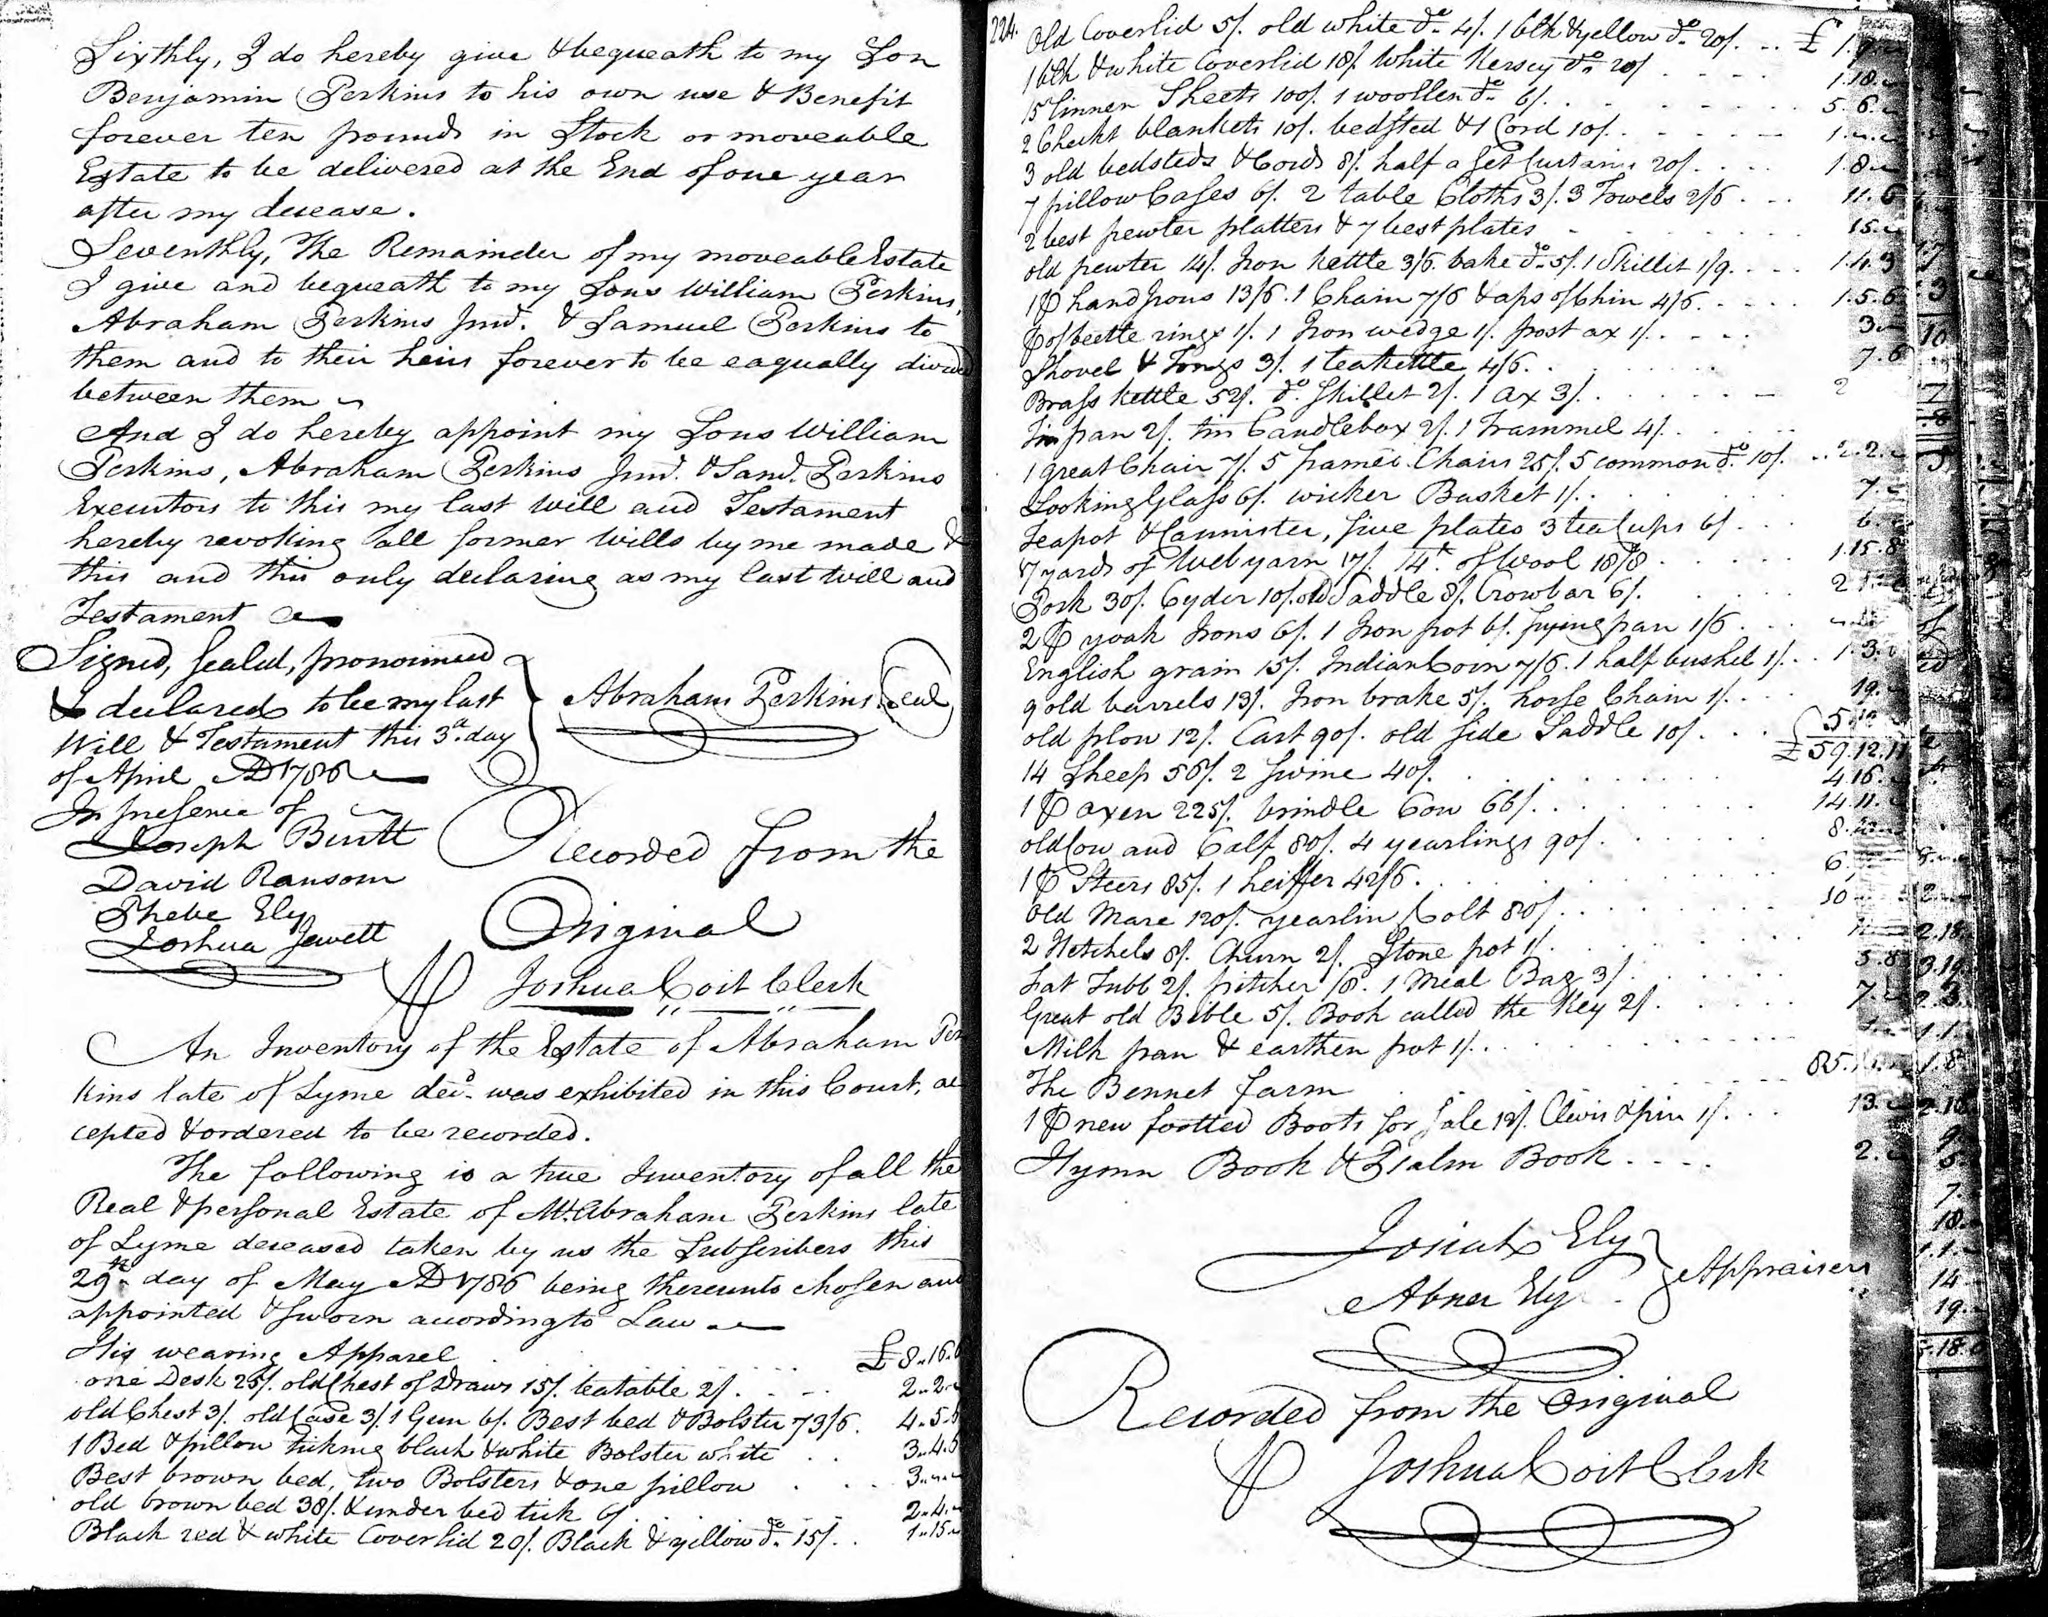 Sixthly, I do hereby give & bequeath to my Son
Benjamin Perkins to his own use & Benefit
forever ten pounds in Stock or moveable
Estate to be delivered at the End of one year
after my decease.
Seventhly, The Remainder of my moveable Estate
I give and bequeath to my Sons William Perkins,
Abraham Perkins Junr. & Samuel Perkins to
them and to their heirs forever to be eaqually divided
between them
And I do hereby appoint my Sons William
Perkins, Abraham Perkins Junr. & Saml. Perkins
Executors to this my last Will and Testament
hereby revoking all former Wills by me made &
this and this only declaring as my last Will and
Testament
Signed, Sealed, pronounced
& declared to be my last
Will & Testament this 3d. day
of April AD 1786
In presence of
Abraham Perkins Seal
Joseph Burtt
David Ransom
Phebe Ely
Joshua Jewett
Recorded from the
Original
P Joshua Coit Clerk
An Inventory of the Estate of Abraham Per
kins late of Lyme decd. was exhibited in this Court, ac
cepted & ordered to be recorded.
The following is a true Inventory of all the
Real & personal Estate of Mr. Abraham Perkins late
of Lyme deceased taken by us the Subscribers this
29th day of May AD 1786 being thereunto chosen and
appointed & sworn according to Law
His wearing Apparel £8..16.6
one Desk 25/. old Chest of Draws 15/. teatable 2/. 2..2..
old Chest 3/. old Case 3/. 1 Gun 6/. Best bed & Bolster 73/6. 4..5.6
1 Bed & pillow ticking black & white Bolster white 3..4.
Best brown bed, two Bolsters & one pillow 3..
old brown bed 38/. & under bed tick 6/ 2..4..
Black red & white Coverlid 20/. Black & yellow do. 15/. 1..15..
224. Old Coverlid 5/. old white do. 4/. 1 blk & yellow do. 20/. £1.9.
1 blk & white Coverlid 18/. White Kersey do. 20/ 1.18.
15 linnen Sheets 100/. 1 woollen do. 6/. 5.6.
2 Checkt blankets 10/. bedsted & 1 Cord 10/. 1..
3 old bedsteds & Cords 8/. half a Set Curtains 20/. 1.8
7 pillow Cases 6/. 2 table Cloths 3/. 3 Towels 2/6 11.6
2 best pewter platters & 7 best plates 15.
old pewter 14/. Iron Kettle 3/6. bake do. 5/. 1 Skillit 1/9. 1.4.3
1 P hand Irons 13/6. 1 Chain 7/6 4/6. 1.5.6
P of beetle rings 1/. 1 Iron wedge 1/. post ax 1/. 3.
Shovel & Tongs 3/. 1 teakettle 4/6. 7.6
Brass kettle 52/. do. Skillet 2/. 1 ax 3/. 2
Tin pan 2/. tin Candlebox 2/. 1 Trammel 4/.
1 great Chair 7/. 5 framed Chairs 25/. 5 common do. 10/. 2.2.
Looking Glass 6/. wicker Basket 1/. 7.
Teapot & Cannister, five plates 3 tea Cups 6/. 6.
17 yards of Web yarn 17/. 14lb. of Wool 18/8 1.15.8
Pork 30/. Cyder 10/. old Saddle 8/. Crowbar 6/.
2 P yoak Irons 6/. 1 Iron pot 6/. frying pan 1/6
English grain 15/. Indian Corn 7/6. 1 half bushel 1/. 1.3.
9 old barrels 13/. Iron brake 5/. horse Chain 1/. 19.
old plow 12/. Cart 90/. old side Saddle 10/. 5.12
£59.12.11
14 Sheep 56/. 2 Swine 40/. 4.16.
1 P oxen 225/. brindle Cow 66/. 14.11.
old Cow and Calf 80/. 4 yearlings 90/. 8.
1 P Steers 85/. 1 heiffer 42/6. 6.
Old Mare 120/. yearlin Colt 80/. 10
2 Hetchels 8/. Churn 2/. Stone pot 1/. 11.
Fat Tubb 2/. pitcher /8. 1 Meal Bag 3/. 5.8
Great old Bible 5/. Book called the Key 2/. 7.
Milk pan & earthen pot 1/. 1.
The Bennet farm 85.
1 P new footted Boots for Sale 12/. Clevis & pin 1/. 13.
Hymn Book & Psalm Book 2.
Josiah Ely
Abner Ely
Appraisers
Recorded from the Original
P Joshua Coit Clerk